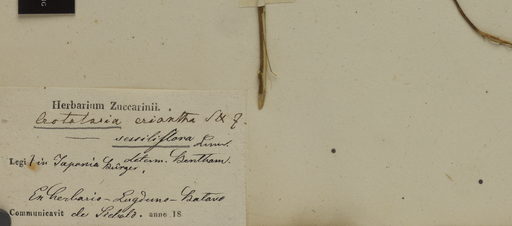 Herbarium Zuccarinii.
Crotalaria eriantha S & Z.
— sessiliflora Linn.
Legit in Japonia Bürger. determ. Bentham.
Ex herbario Lugduno-Batavo
Communicavit de Siebold. anno 18